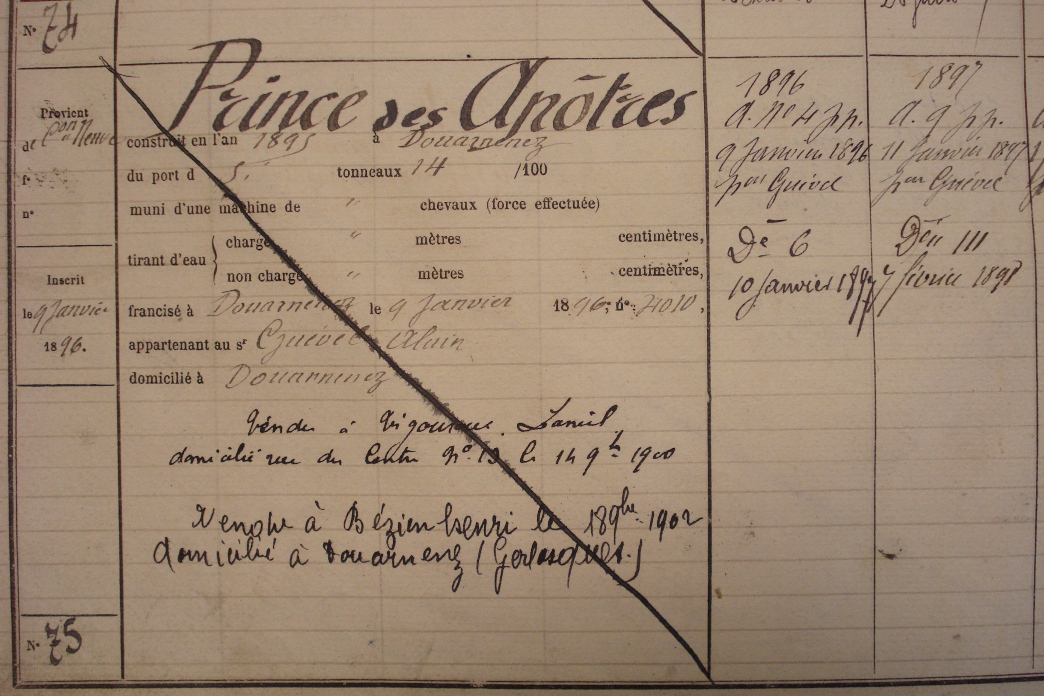 N° 74
Prince des Apôtres
Provient
de Con Neuve
f°
n°
Inscrit
le 9 Janvier
1896.
construit en l'an 1895 à Douarnenez
du port d 5. tonneaux 14 /100
muni d'une machine de " chevaux (force effectuée)
tirant d'eau { chargé " mètres centimètres,
non chargé " mètres centimètres,
francisé à Douarnenez le 9 Janvier 1896; n° 4010,
appartenant au sr Guével Alain
domicilié à Douarnenez
Vendu à Vigouroux Daniel
domicilié rue du Centre N° 13 le 14 9b 1900
Vendu à Bézien henri le 18 9bre 1902
domicilié à Douarnenez (
N° 75
1896
a. n° 4 pp.
9 Janvier 1896
par Guével
De 6
10 Janvier 1897
1897
a. 9 pp.
11 Janvier 1897
par Guével
Den 111
7 février 1898